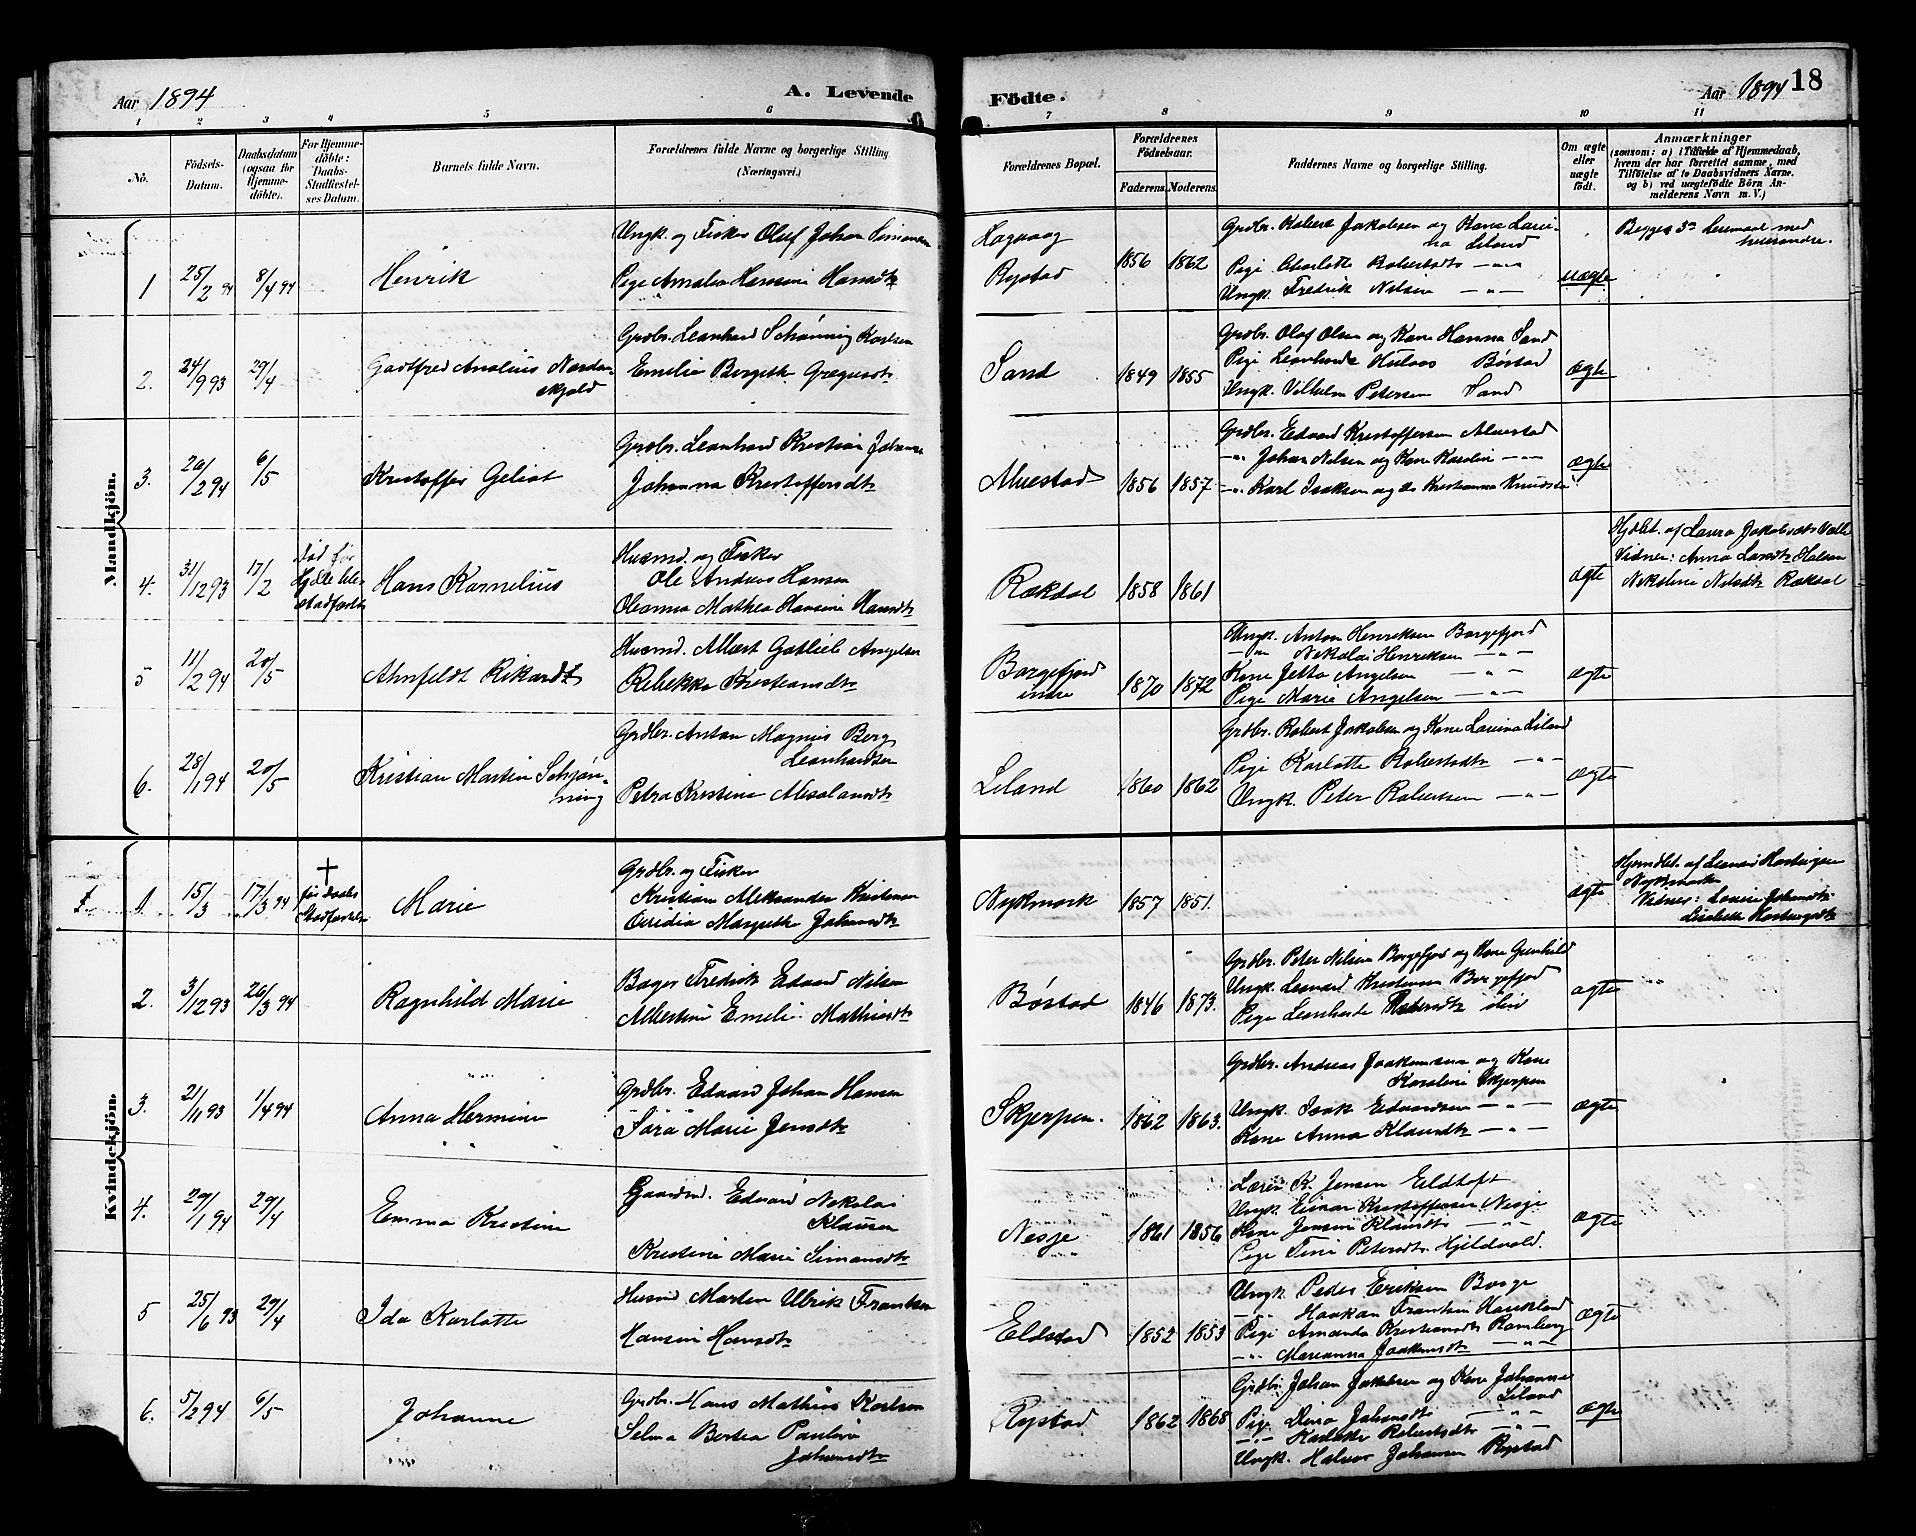 Aar 1894
A. Levende
Födte.
Aar 1894
18
1 2 3 4 5 6 7 8 9 10 11
No.
Födsels-
Datum.
Daabsdatum
(ogsaa for
Hjemme-
döbte).
For Hjemme-
döbte:
Daabs-
Stadfæstel-
ses Datum.
Barnets fulde Navn.
Forældrenes fulde Navne og borgerlige Stilling
(Næringsvei.)
Forældrenes Bopæl.
Forældrenes
Födselsaar.
Faderens. Moderens.
Faddernes Navne og borgerlige Stilling.
Om ægte
eller
uægte
födt.
Anmærkninger
(saasom: a) i Tilfælde af Hjemmedaab,
hvem der har forrettet samme, med
Tilföielse af to Daabsvidners Navne.
og b) ved uægtefödte Börn An-
melderens Navn m. V.)
Mandkjön.
1 25/2 94 8/4 94
Henrik
Ungk. og Fisker Oluf Johan Simonsen
Pige Amalia Hansine Hansdtr
Rystad
1856 1862
Grdbr. Robert Jakobsen og Kone Lavi-
na Liland
Pige Charlotte Robertsdtr —"—
Ungk. Fredrik Nilsen —"—
uægte
Begges 3die Leiermaal med
hverandre.
2. 24/9 93 29/4
Godtfred Analius Norden-
skjold
Grdbr. Leonhard Schønning Karlsen
Emelie Bergith Gregusdtr
Sand
1849 1855
Grdbr. Olaf Olsen og Kone Hanna Sand
Pige Leonharda Bøstad
Ungk. Vilhelm Petersen Sand
ægte
3. 26/2 94 6/5
Kristoffer Geliot
Grdbr. Leonhard Kristian Johansen
Johanna Kristoffersdtr
Alvestad
1856 1857
Grdbr. Edvard Kristoffersen Alvestad
—"— Johan Nilsen og Kone Karolin —"—
—"— Karl Isaksen og do Kristianna
ægte
4. 31/12 93 17/2
død før
Hans Kornelius
Husmd. og Fisker
Ole Andreas Hansen
Oleanna Mathea Hansine Hansdtr
Rækdal
1858 1861
ægte
Hjdbt. af Laura Jakobsdtr Valle
Vidner: Anna Larsdtr
Nikoline Nilsdtr Rækdal
5 11/2 94 20/5
Ahnfeldt Rikardt
Husmd. Albert Gotlieb Angelsen
Rebekka Kristiansdtr
Borgefjord
indre
1870 1872
Ungk. Anton Henriksen Borgefjord
—"— Nikolai Henriksen —"—
Kone Jetta Angelsen —"—
Pige Marie Angelsen —"—
ægte
6. 28/1 94 20/5
Kristian Martin Schjøn-
ning
Grdbr. Anton Magnus Berg
Leonhardsen
Petra Kristine Absalonsdtr
Liland
1860 1862
Grdbr. Robert Jakobsen og Kone Lavina Liland
Pige Karlotte Robertsdtr —"—
Ungk. Peter Robertsen —"—
ægte
Kvindekjön.
1. 15/3 17/3 94
†
før daabs
Stadfæstelse
Marie
Grdbr. og Fisker
Kristian Aleksander Kristensen
Ovidia Margrethe Johansdtr
Nykmark
1857 1851.
ægte
Hjemdbt. af
Nykmarken
Vidner: Lovise Johansdtr
2. 3/12 93 26/3 94
Ragnhild Marie
Bager Fredrik Edvard Nilsen
Albertine Emelie Mathisdtr
Bøstad
1846 1873.
Grdbr. Peter Nilsen Borgefjord og Kone Gunhild
Ungk. Leonard Kristensen Borgefjord
Pige Leonharda
ægte
3. 21/11 93 1/4 94
Anna Hermine
Grdbr. Edvard Johan Hansen
Sara Marie Jensdtr
Skjerpen.
1862 1863.
Grdbr. Andreas Joakimsen og Kone
Karoline Skjerpen
Ungk. Isak Edvardsen —"—
Kone Anna Klausdtr —"—
ægte
4. 29/1 94 29/4
Emma Kristine
Gaardmd. Edvard Nikolai
Klausen
Kristine Marie Simonsdtr
Nesje
1861 1856
Lærer K. Jensen Eldtoft
Ungk. Einar Kristoffersen Nesje
Kone Jensine Klausdtr —"—
Pige Tine Petersdtr. Hjeldvold.
ægte
5 25/6 93 29/4
Ida Karlotte
Husmd Morten Ulrik Frantsen
Hansine Hansdtr
Eldstad
1852 1853
Ungk Peder Eriksen Borge
—"— Haakan Frantsen
Pige Amanda Kristiansdtr Ramberg
—"— Marianna Joakimsdtr —"—
ægte
6. 5/2 94 6/5
Johanne
Grdbr. Hans Mathias Karlsen
Selma Bertea Pauline
Johansdtr
Rystad
1862 1868
Grdbr. Johan Jakobsen og Kone Johanna
Liland
Pige Dina Johansdtr —"—
—"— Karlotte Robertsdtr —"—
Ungk. Halvor Johansen Rystad
ægte